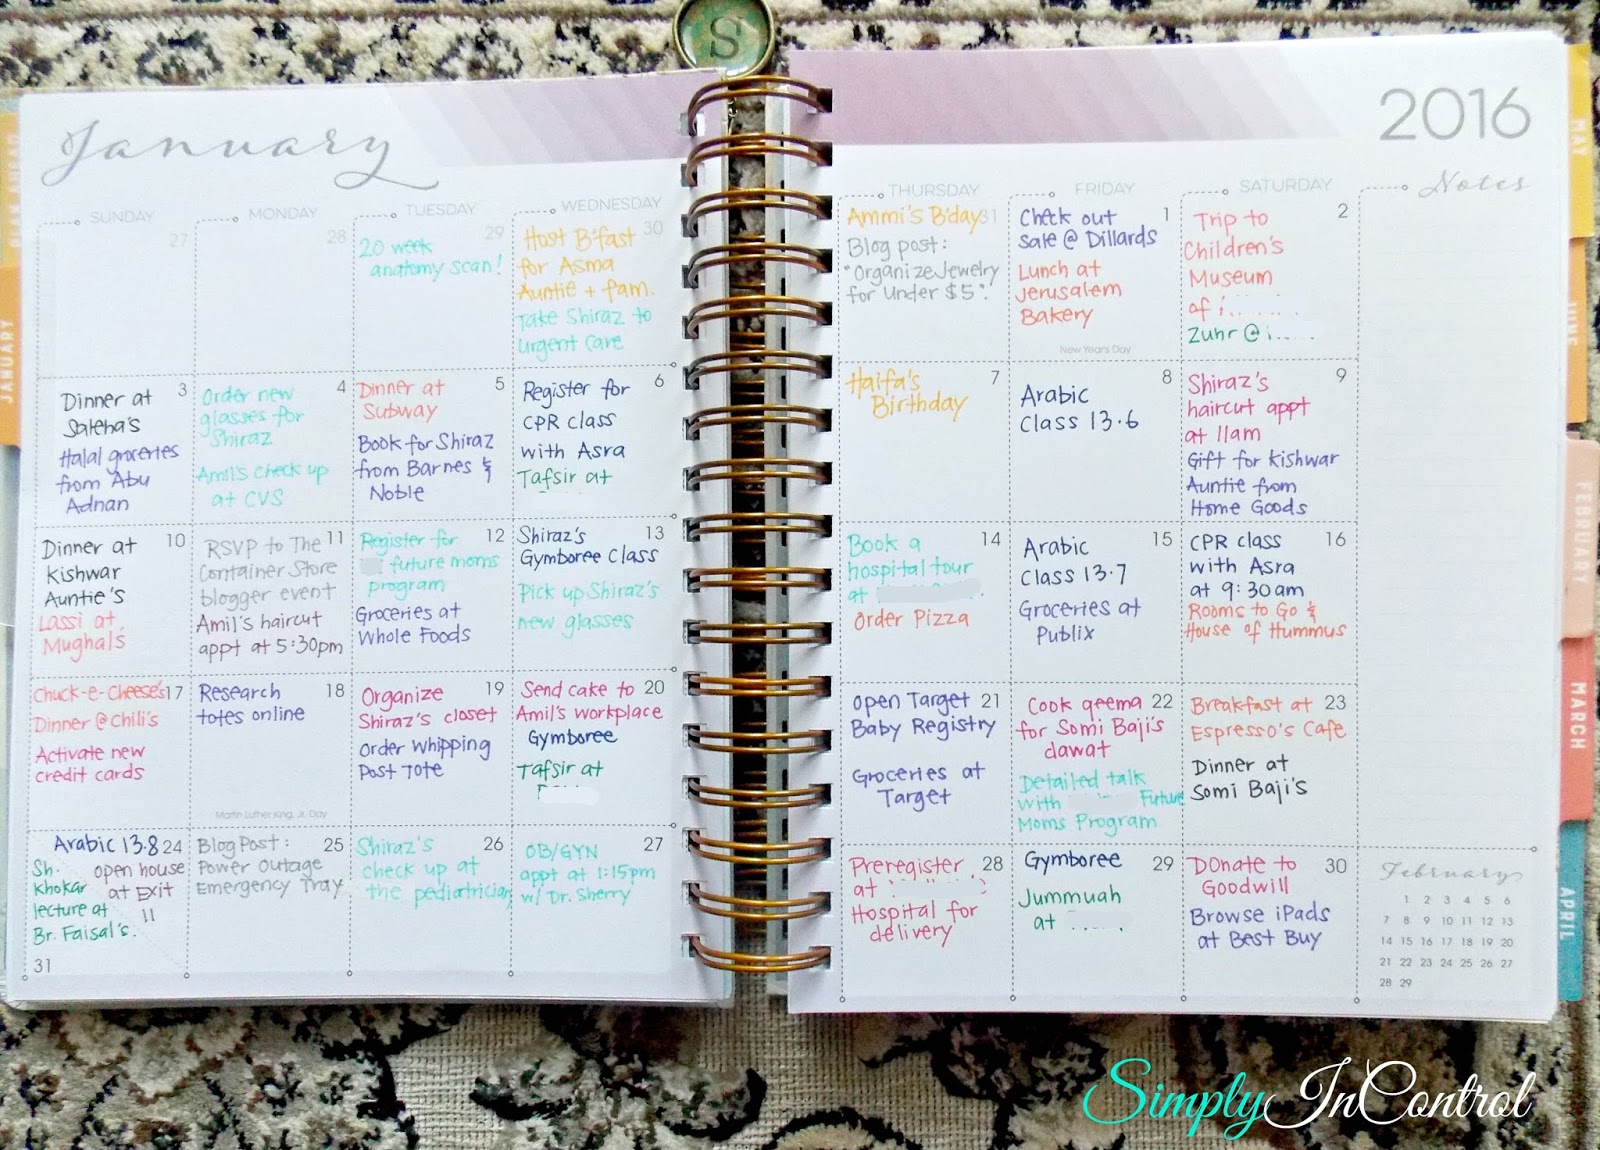 S
January
2016
SUNDAY
MONDAY
TUESDAY
WEDNESDAY
THURSDAY
FRIDAY
SATURDAY
Notes
27
28
29
20 week
anatomy scan!
30
Host B'fast
for Asma
Auntie + fam.
Take Shiraz to
Urgent Care
Ammi's B'day 31
Blog post:
"Organize Jewelry
for Under $5".
1
Check out
Sale @ Dillards
Lunch at
Jerusalem
Bakery
New Years Day
2
Trip to
Children's
Museum
of
Zuhr @
3
Dinner at
Saleha's
Halal groceries
from Abu
Adnan
4
Order new
glasses for
Shiraz
Amil's check up
at CVS
5
Dinner at
Subway
Book for Shiraz
from Barnes &
Noble
6
Register for
CPR class
with Asra
Tafsir at
7
Haifa's
Birthday
8
Arabic
Class 13.6
9
Shiraz's
haircut appt
at 11am
Gift for Kishwar
Auntie from
Home Goods
10
Dinner at
Kishwar
Auntie's
Lassi at
Mughals
11
RSVP to The
Container Store
blogger event
Amil's haircut
appt at 5:30pm
12
Register for
future moms
program
Groceries at
Whole Foods
13
Shiraz's
Gymboree Class
Pick up Shiraz's
new glasses
14
Book a
hospital tour
at
Order Pizza
15
Arabic
Class 13.7
Groceries at
Publix
16
CPR class
with Asra
at 9:30am
Rooms to Go &
House of Hummus
Chuck-e-Cheese's 17
Dinner @ Chili's
Activate new
credit cards
18
Research
totes online
Martin Luther King, Jr. Day
19
Organize
Shiraz's closet
Order Whipping
Post Tote
20
Send cake to
Amil's workplace
Gymboree
Tafsir at
21
Open Target
Baby Registry
Groceries at
Target
22
Cook qeema
for Somi Baji's
dawat
Detailed talk
with Future
Moms Program
23
Breakfast at
Espresso's Cafe
Dinner at
Somi Baji's
Arabic 13.8 24
Sh.
Khokar
lecture at
Br. Faisal's.
open house
at Exit
11
31
25
Blog Post:
Power Outage
Emergency Tray
26
Shiraz's
check up at
the pediatrician
27
OB/GYN
appt at 1:15pm
w/ Dr. Sherry
28
Preregister
at
Hospital for
delivery
29
Gymboree
Jummuah
at
30
Donate to
Goodwill
Browse iPads
at Best Buy
February
1 2 3 4 5 6
7 8 9 10 11 12 13
14 15 16 17 18 19 20
21 22 23 24 25 26 27
28 29
JANUARY
MAY
JUNE
FEBRUARY
MARCH
APRIL
Simply InControl